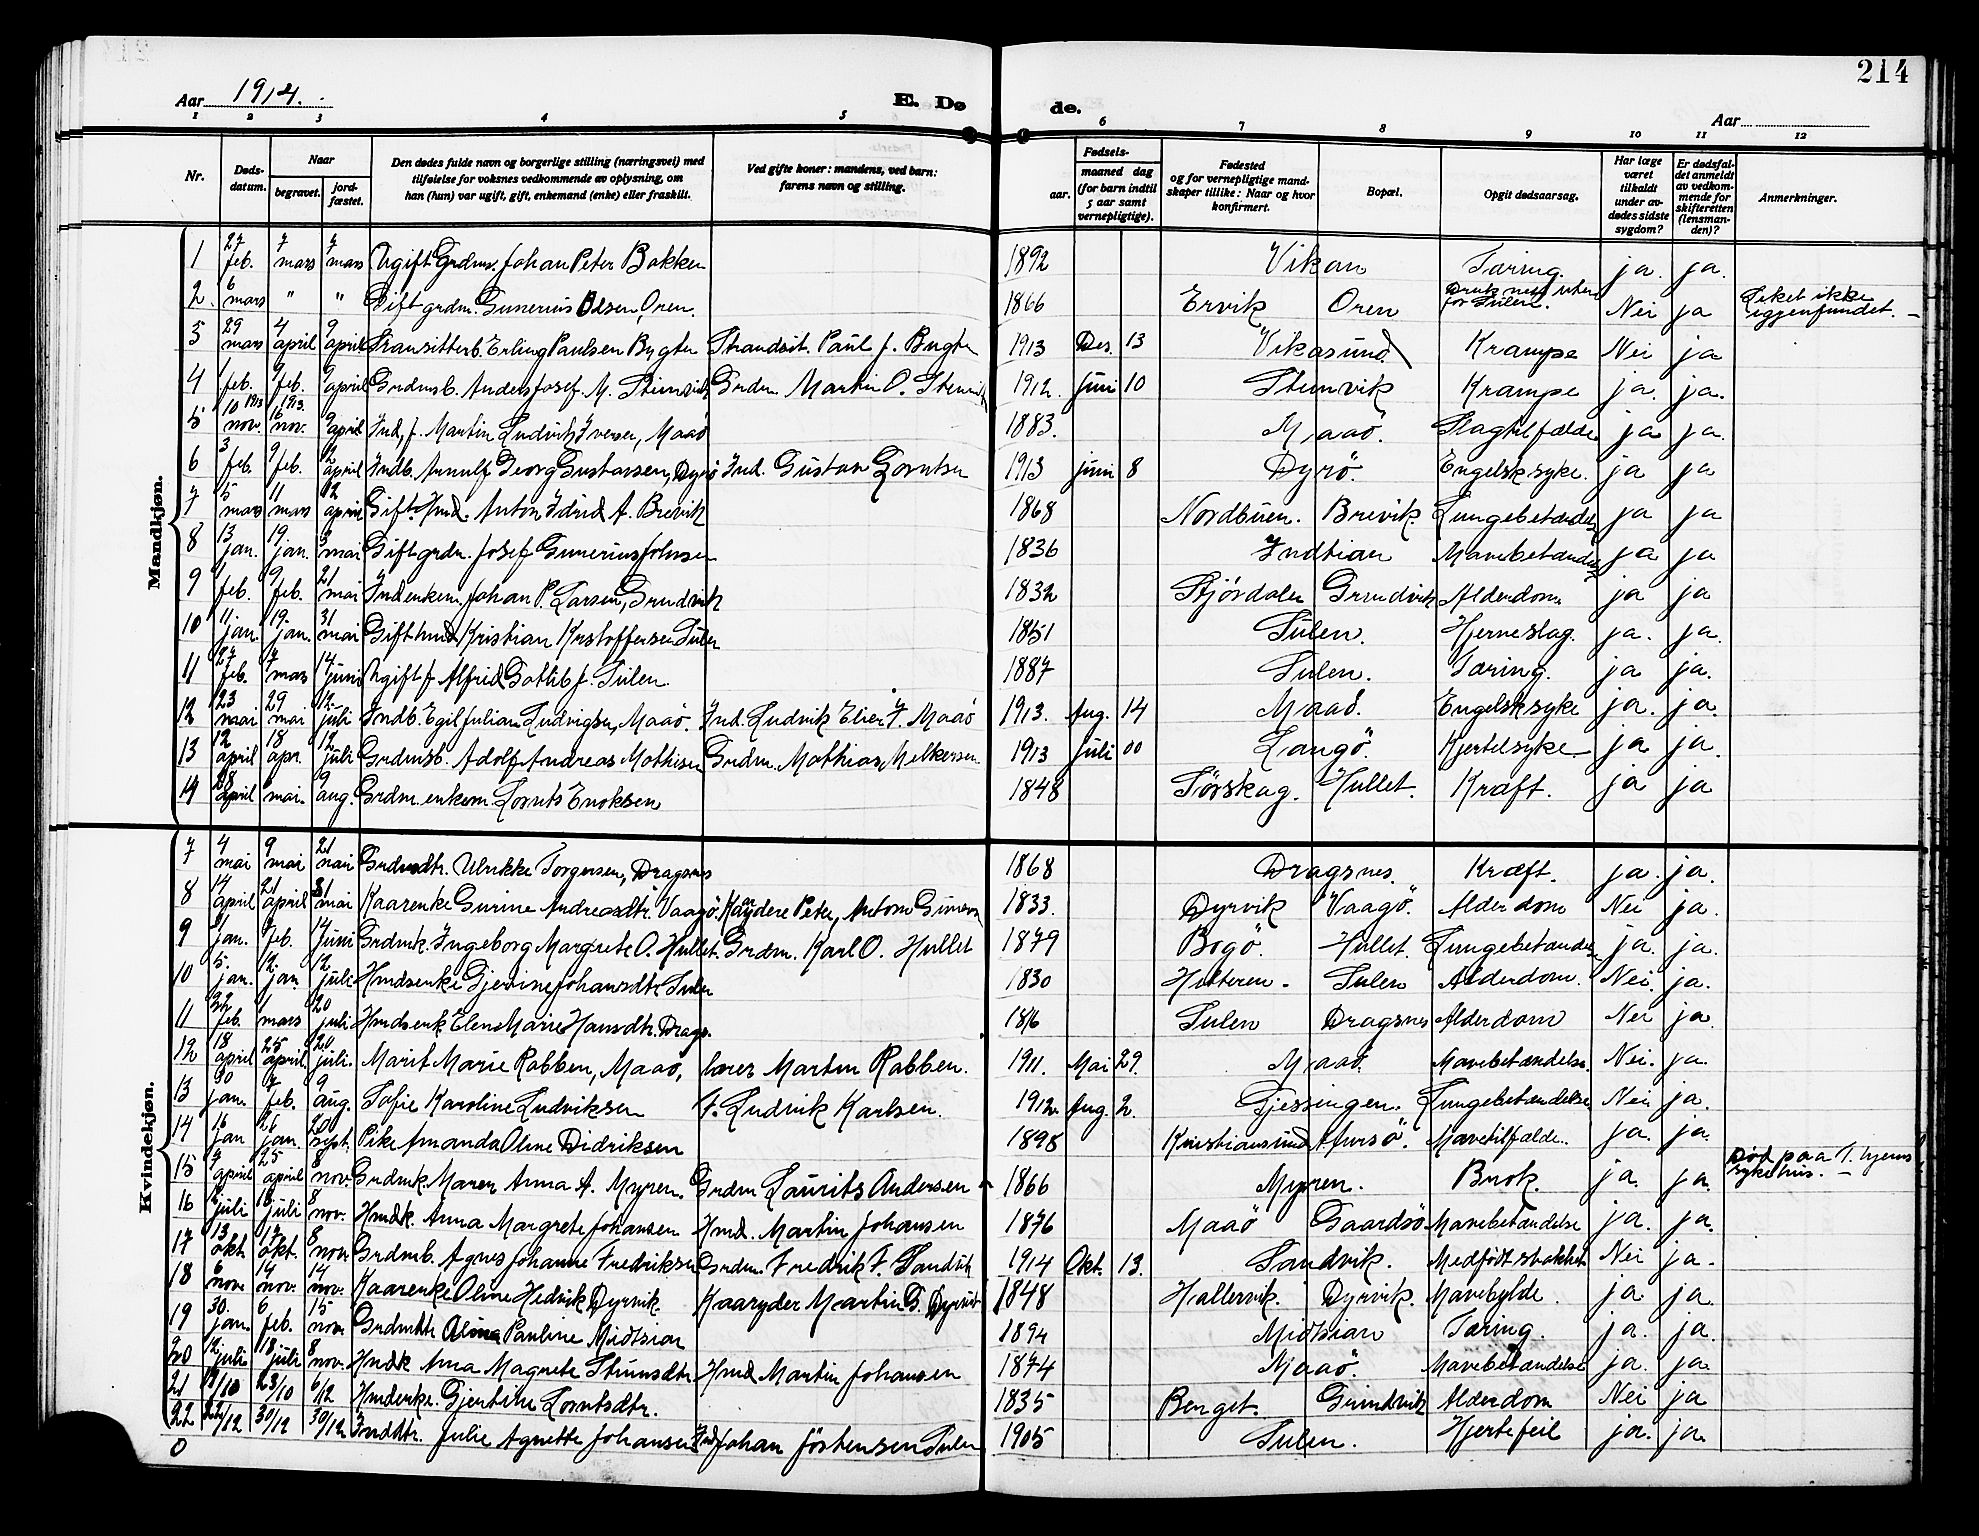 214
Aar 1914.
E. Døde.
Aar
1 2 3 4 5 6 7 8 9 10 11 12
Nr.
Døds-datum.
Naar
begravet.
jord-fæstet.
Den dødes fulde navn og borgerlige stilling (næringsvei) med tilføielse for voksnes vedkommende av oplysning, om han (hun) var ugift, gift, enkemand (enke) eller fraskilt.
Ved gifte koner: mandens, ved barn: farens navn og stilling.
Fødsels-
aar.
maaned dag (for barn indtil 5 aar samt vernepligtige).
Fødested og for vernepligtige mandskaper tillike: Naar og hvor konfirmert.
Bopæl.
Opgit dødsaarsag.
Har læge været tilkaldt under avdødes sidste sygdom?
Er dødsfaldet anmeldt av vedkommende for skifteretten (lensmanden)?
Anmerkninger.
Mandkjøn.
1 27 feb. 7 mars 7 mars Ugift Grdms. Johan Peter Bakken 1892 Vikan Tæring. ja. ja.
2. 6 mars " " Gift grdm. Gunerius Olsen, Oren. 1866 Ervik Oren Druknet utenfor Sulen. Nei ja Liket ikke igjenfundet. –
3 29 mars 4 april 9 april Stransitterb. Erling Paulsen Bygter Strandsit. Paul J. Bygter 1913 Des. 13 Vikasund Krampe Nei ja
4 1 feb. 9 feb. 9 april Grdmsb. Anders Josef M. Stenvik Grdm. Martin O. Stenvik 1912. juni 10 Stenvik Krampe ja. ja.
5 10 1913 nov. 16 1913. nov. 9 april Ind. f. Martin Ludvik Iversen, Maaö 1883. Maaö. Slagtilfælde ja ja.
6 3 feb. 9 feb. 12 april Indb. Arnulf Georg Gustavsen, Dyrö Ind. Gustav Lorntsen 1913 juni 8 Dyrö. Engelsk syke. ja ja
7 5 mars 11 mars 12 april Gift. Hmd. Anton Idrid A. Brevik 1868 Nordbuen. Brevik. Lungebetændelse ja ja
8 13 jan. 19 jan. 3 mai Gift grdm. Josef Gunerius Johnsen 1836 Indtian Mavebetændelse ja ja
9 1 feb. 9 feb. 21 mai Ind enkem. Johan P. Larsen, Grindvik 1832 Stjördalen Grindvik Alderdom ja ja
10 11. jan. 19. jan. 31 mai Gift hmd Kristian Kristoffersen Sulen 1851 Sulen. Hjerneslag. ja. ja.
11 27 feb. 7 mars 14 juni Ugift f Alfred Gotlib J. Sulen. 1887 Sulen. Tæring. ja ja.
12 23 mai 29 mai 12. juli Indb. Egil Julian Ludvigsen, Maaö. Ind. Ludvik Elier I. Maaö 1913. Aug. 14 Maaö. Engelsksyke ja. ja.
13 12 april 18 apr. 12 juli Grdmsb. Adolf Andreas Mathisen Grdm. Mathias Melkersen. 1913 Juli 00 Langö. Kjertelsyke ja ja.
14 28 april mai. 9 aug. Grdm. enkem. Lornts Enoksen 1848 Förskag. Hullet. Kræft. ja ja
Kvindekjøn.
7 4 mai 9 mai 21 mai Grdmdtr. Ulrikke Torgersen, Dragsnes 1868 Dragsnes. Kræft. ja. ja.
8 14 april 21 april 31 mai Kaarenke Gurine Andreasdtr. Vaagö. Kaaydere Peter, Anton 1833. Dyrvik Vaagö. Alderdom Nei ja.
9 1 jan. 7 feb. 14 Juni Grdmk. Ingeborg Margrete O. Hullet. Grdm. Karl O. Hullet 1879 Bogö. Hullet. Lungebetændelse ja. ja.
10 5. jan. 12. jan 12 juli Hmdsenke Gjertine Johansdtr. Sulen 1830 Hitteren. Sulen Alderdom. Nei. ja.
11 22 feb. 1 mars 20 juli Hmdsenk. Elen Marie Hansdtr. Drags. 1816 Sulen Dragsnes Alderdom Nei ja.
12 18 april 25 april 20 juli. Marit Marie Rabben, Maaö, lærer Martin Rabben. 1911. Mai 29. Maaö. Mavebetændelse. Nei. ja.
13 30 jan. 7 feb. 9 aug. Sofie Karoline Ludviksen F. Ludvik Karlsen. 1912. Aug. 2. Gjessingen. Lungebetændelse Nei ja.
14 16 jan 26 jan. 20 sept. Pike Amanda Oline Didriksen 1898 Kristiansund Mavetilfælde. ja. ja.
15 7 april 25 april 8 nov. Grdmk. Maren Anna A. Myren. Grdm Laurits Andersen 1866 Myren. Brok. ja. ja. Död paa T. hjems sykehus. –
16 12 juli 18 juli 8 nov. Hmdk. Anna Margrete Johansen Hmd. Martin Johansen 1876 Maaö Gaardsö Mavebetændelse ja. ja.
17 13 okt. 17 okt. 8 nov. Grdmb. Agnes Johanne Fredriksen Grdm. Fredrik F. Sandvik 1914 Okt. 13. Sandvik. Medfödt svakhet Nei ja.
18 6 nov. 14 nov. 14 nov. Kaarenke Oline Hedvik Dyrvik. Kaaryder Martin G. Dyrvik 1848 Hallervik. Dyrvik. Mavebylde. ja ja.
19 30. jan. 6 feb. 15 nov. Grdmdtr Alma Pauline Midtsian 1894 Midtsian Tæring. ja. ja.
20 12. juli 18 juli 8 nov. Hmdk Anna Magrete Hmd Martin Johansen 1874 Maaö. Mavebetændelse ja. ja
21 19/10 23/10 6/12 Hmdenke. Gjertine Lorntsdtr. 1835 Berget. Grindvik Alderdom Nei ja
22 22/12 30/12 30/12 Inddtr. Julie Agnette Johansen Ind Johan Jörtensen Sulen 1905 Sulen. Hjertefeil ja. ja.
0